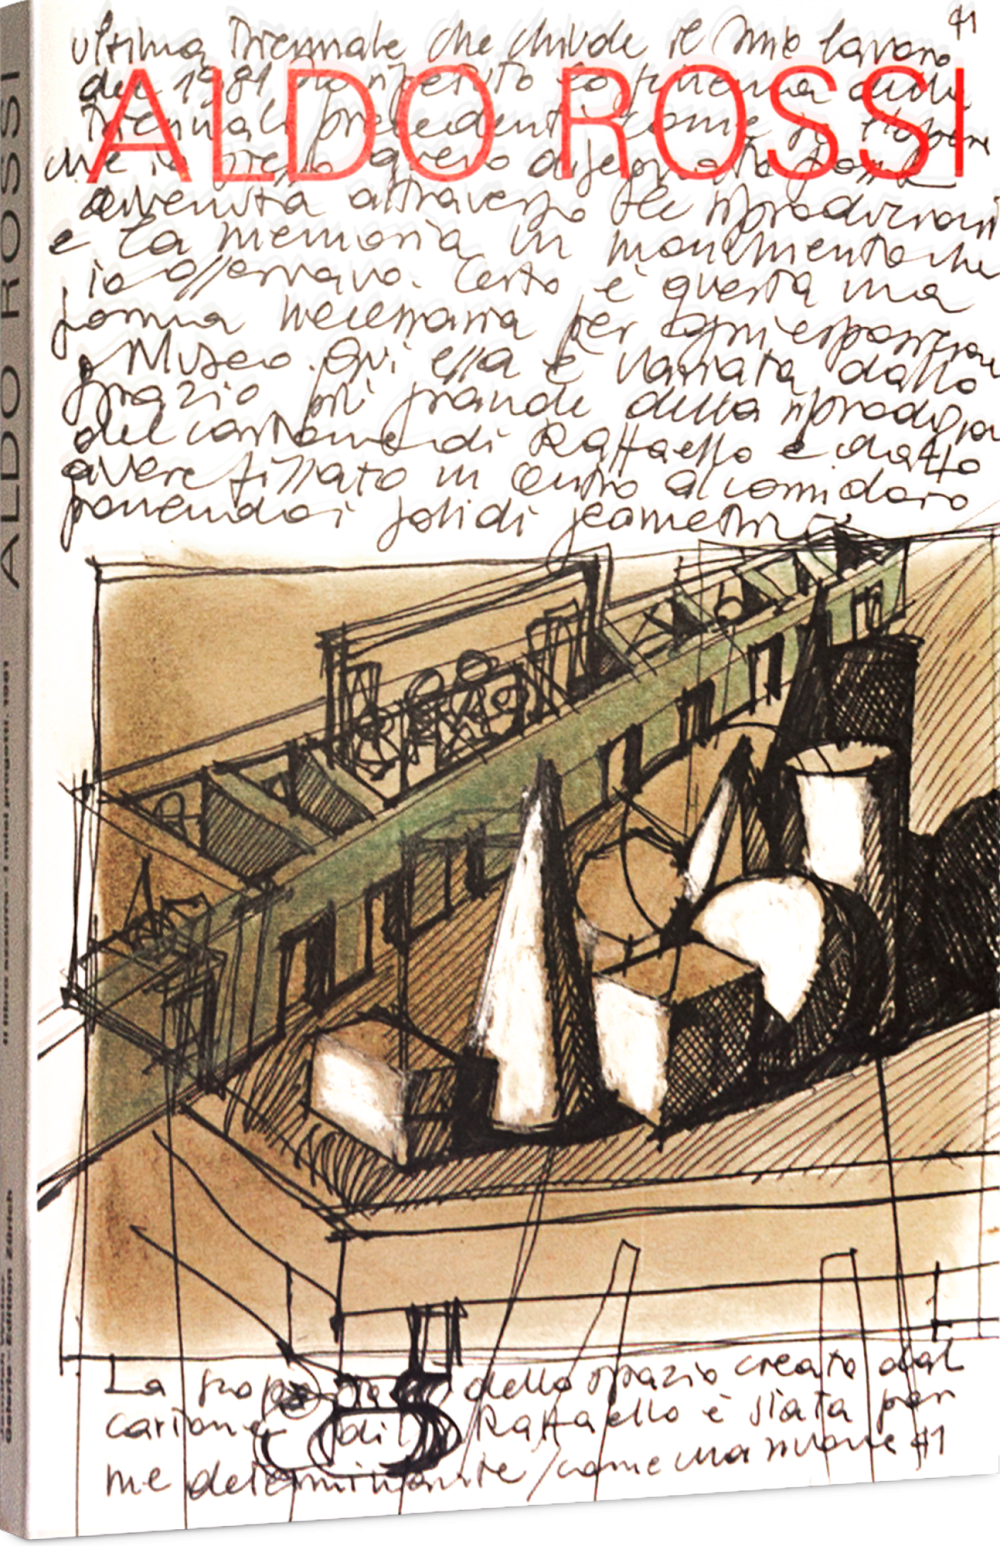 ultima Triennale che chiude il mio lavoro
41
ALDO ROSSI
del 1981
Triennali precedenti come
che io
avvenuta attraverso le riproduzioni
e la memoria in monumento che
io osservavo. Certo è questa una
forma necessaria per ogni esposizione
o Museo. Qui essa è variata dallo
spazio più grande della
del cartone di Raffaello e dall'
avere fissato in centro al corridoio
ponendoci solidi geometri
La dello spazio creato dal
cartone di Raffaello è stata per
me determinante / come una nuova 41
ALDO ROSSI
Il libro azzurro - I miei progetti, 1981
Galerie - Edition Zürich